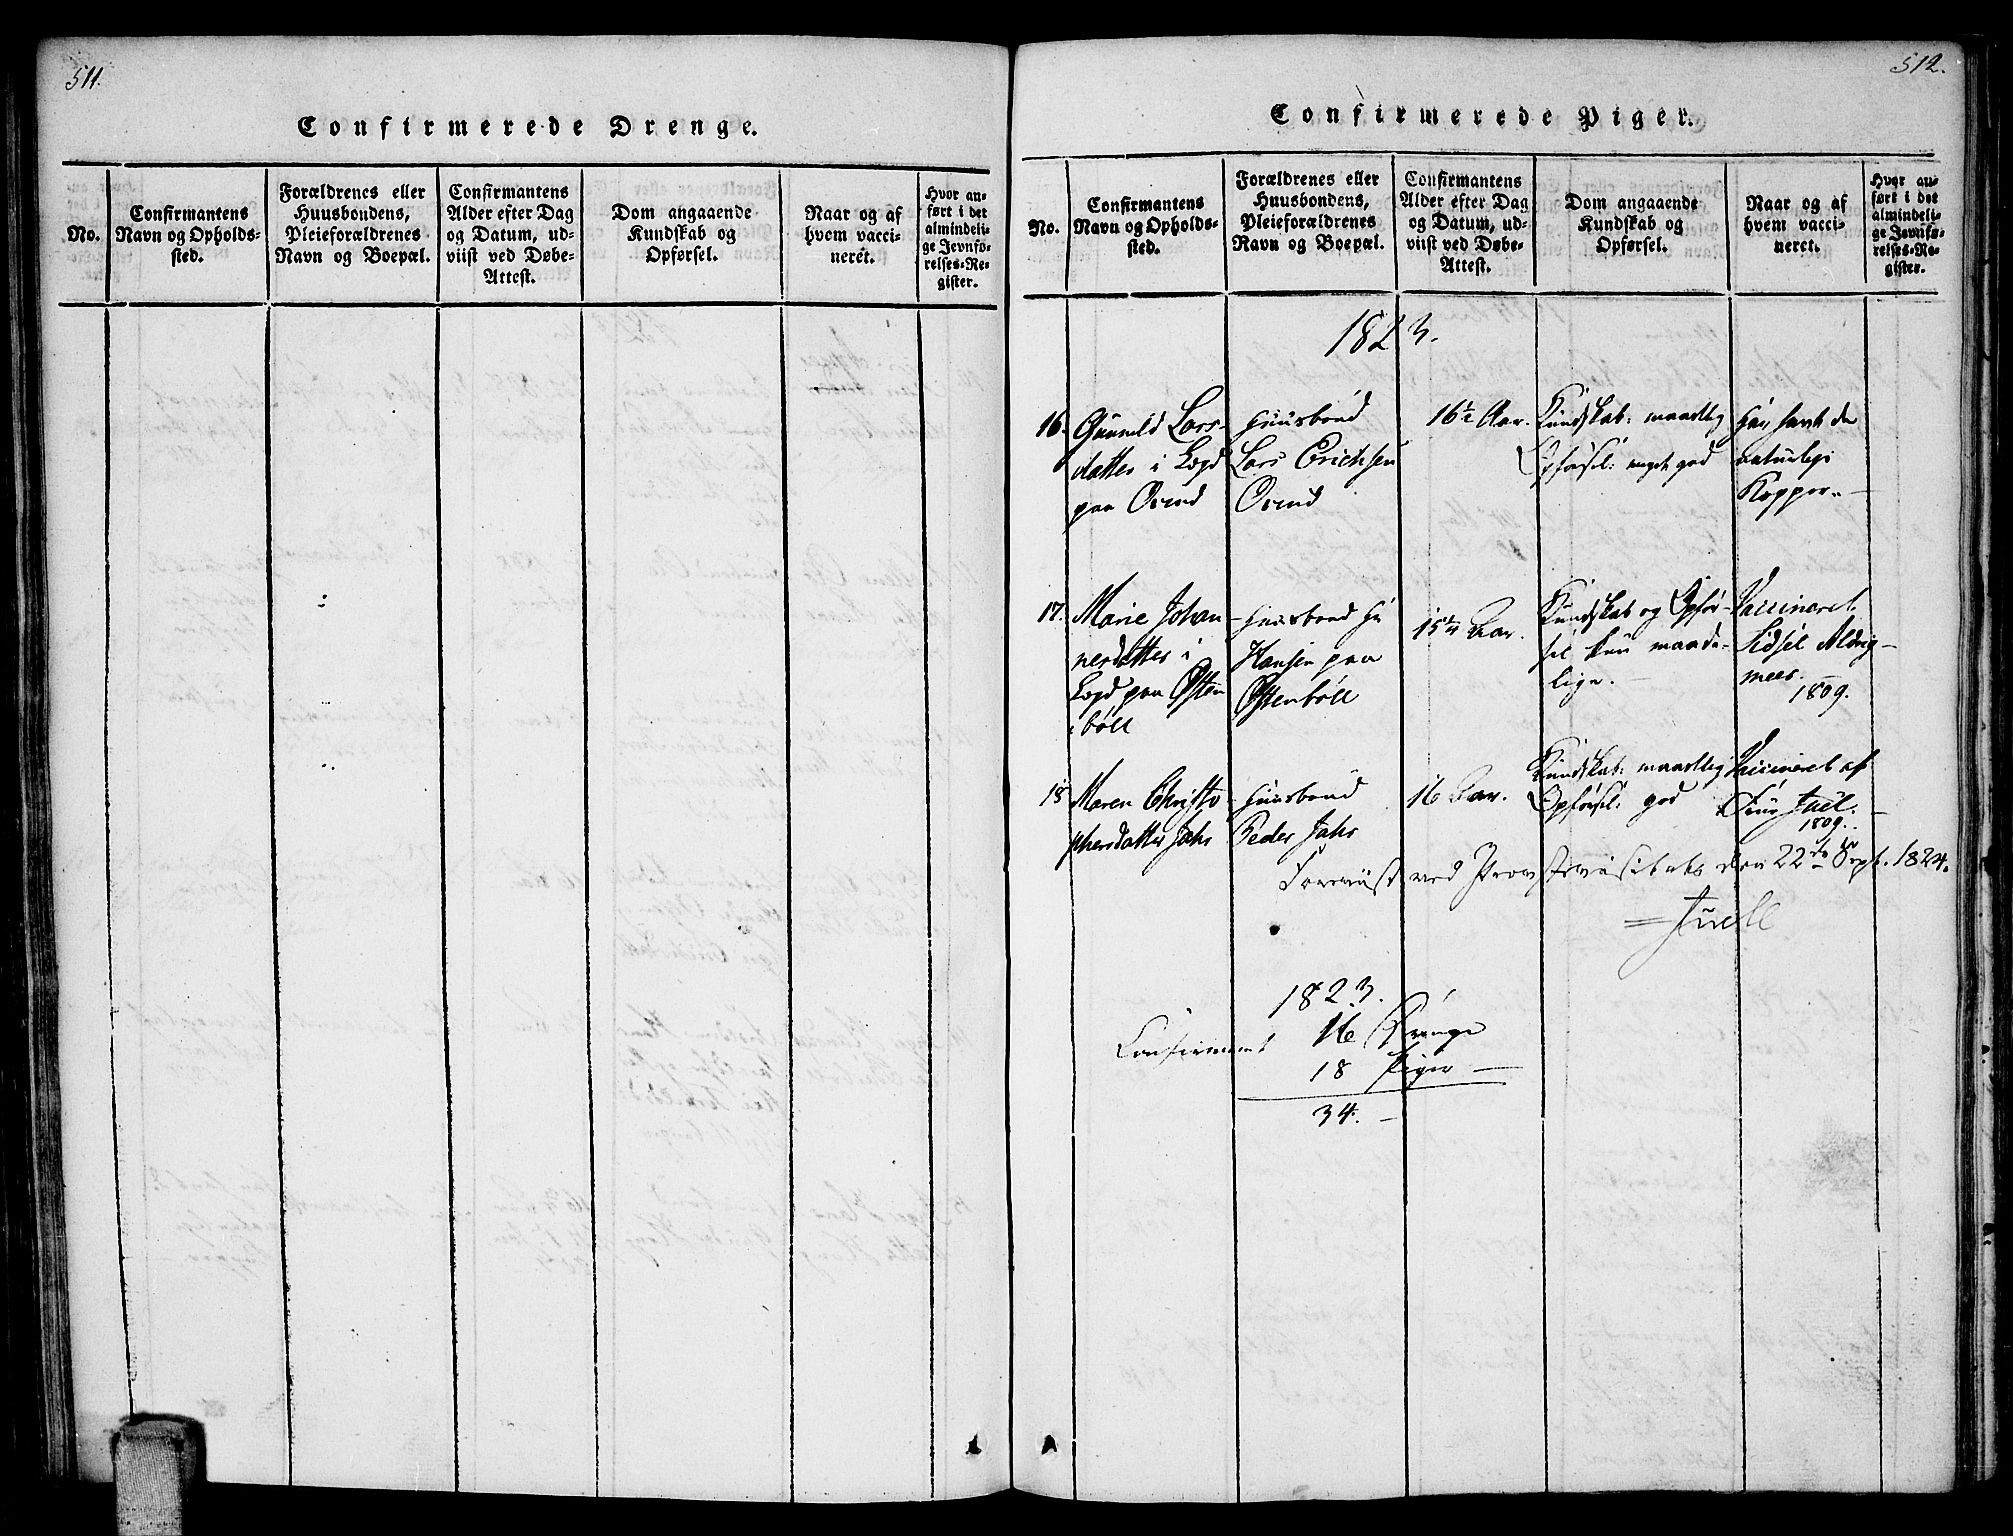 511.
Confirmerede Drenge.
No.
Confirmantens
Navn og Opholds-
sted.
Forældrenes eller
Huusbondens,
Pleieforældrenes
Navn og Boepæl.
Confirmantens
Alder efter Dag
og Datum, ud-
viist ved Døbe-
Attest.
Dom angaaende
Kundskab og
Opførsel.
Naar og af
hvem vacci-
neret.
Hvor an-
ført i det
almindeli-
ge Jevnfø-
relses-Re-
gister.
512.
Confirmerede Piger.
No.
Confirmantens
Navn og Opholds-
sted.
Forældrenes eller
Huusbondens,
Pleieforældrenes
Navn og Boepæl.
Confirmantens
Alder efter Dag
og Datum, ud-
viist ved Døbe-
Attest.
Dom angaaende
Kundskab og
Opførsel.
Naar og af
hvem vacci-
neret.
Hvor an-
ført i det
almindeli-
ge Jevnfø-
relses-Re-
gister.
1823.
16.
Gunild Lars-
datter i Logd
paa
Huusbond
Lars Erichsen
16½ Aar.
Kundskab: maadelig
Opførsel: meget god
Har havt de
naturlige
Kopper.
17.
Marie Johan-
nesdatter i
Logd paa Østen
bøll
Huusbond
Hansen paa
Østenbøll
15¼ Aar.
Kundskab og Opfør-
sel kun maade-
lige.
Vaccineret
Sidsel Aldrig-
meer.
1809.
18
Maren Christo-
phersdatter Jahr
Huusbond
Peder Jahr
16 Aar.
Kundskab: maadelig
Opførsel: god
Vaccineret af
Juel.
1809.
Foreviist ved Provstevisitats den 22de Sept. 1824.
Juell
1823.
Confirmeret 16 Drenge
18 Piger
34.